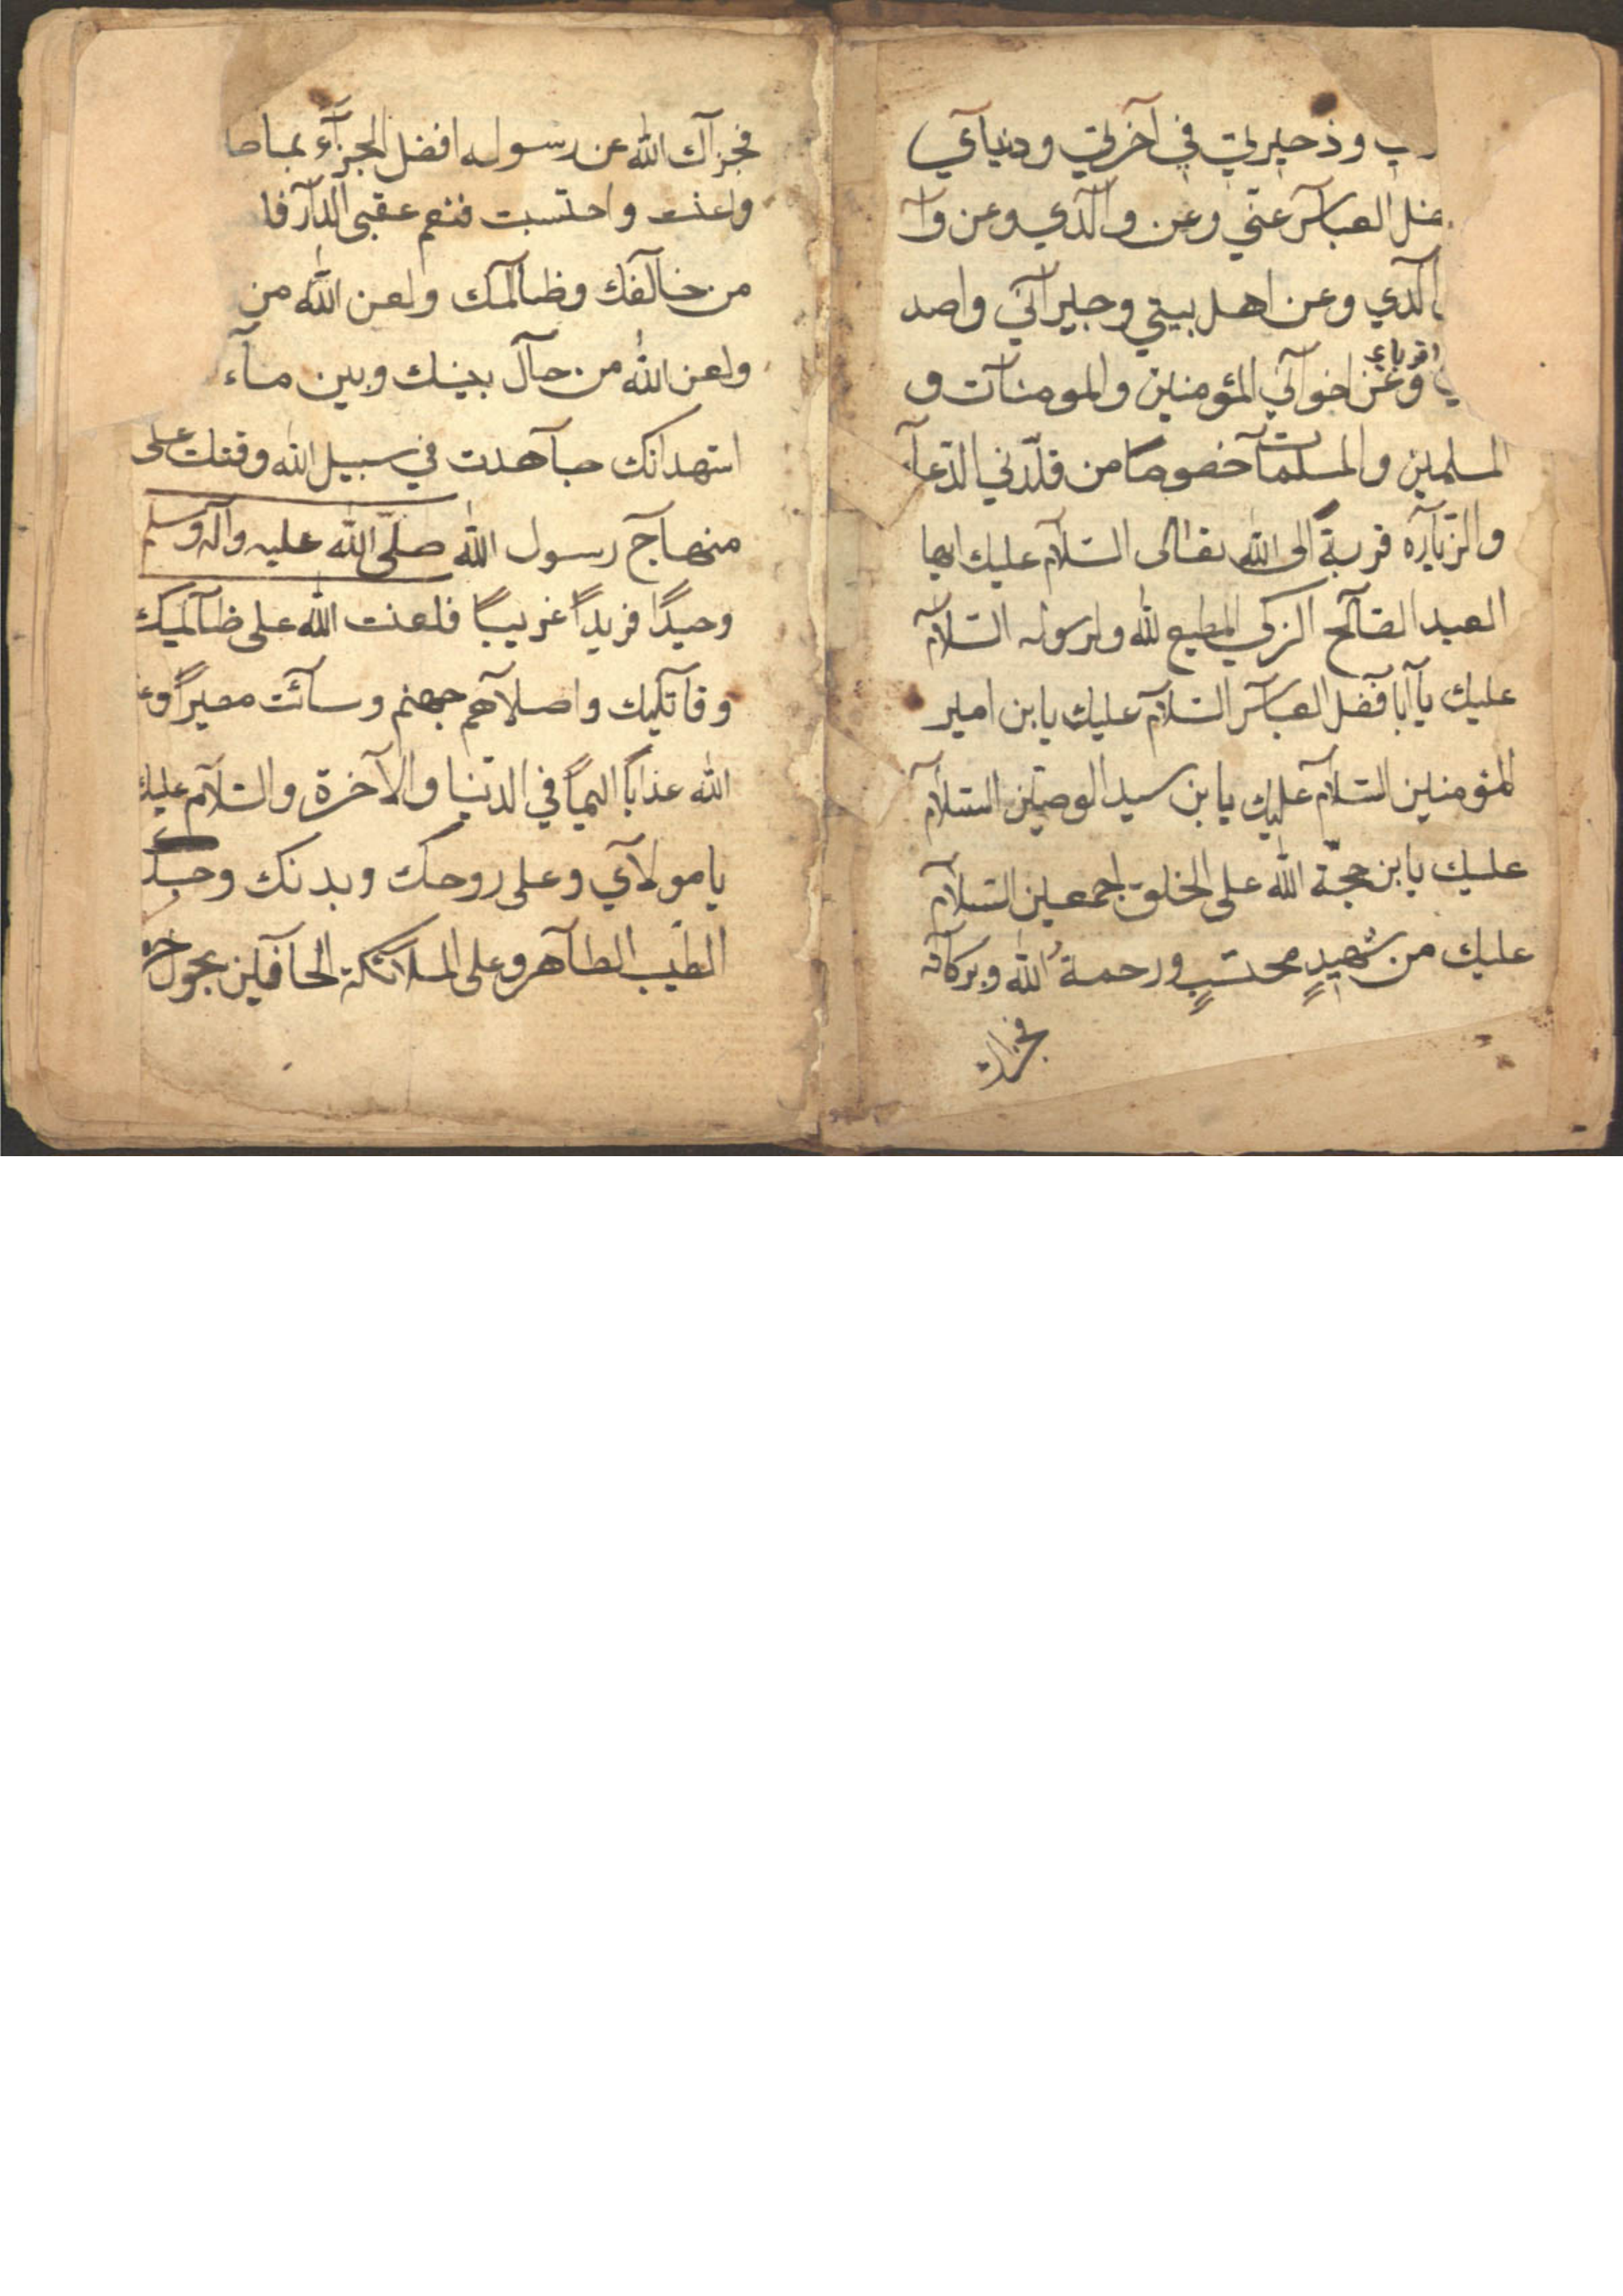 وذخيرتي في آخرتي ودنياي
العباس عني وعن والدي وعن وا
الدي وعن اهل بيتي وجيراني واصد
اقرباي
وعن اخواني المؤمنين والمومنات و
المسلمين والمسلمات خصوصا من قلدني الدعآء
والزيارة قربة الى الله تعالى السلام عليك ايها
العبد الصالح الزكي المطيع لله ولرسوله السلام
عليك يا ابا فضل العباس السلام عليك يابن امير
المؤمنين السلام عليك يابن سيد الوصيين السلام
عليك يابن حجة الله على الخلق اجمعين السلام
عليك من شهيدٍ محتسبٍ ورحمةُ الله وبركاته
فجزاك
فجزاك الله عن رسوله افضل الجزآء بما صا
واعنت واحتسبت فنعم عقبى الدار فا
من خالفك وظالمك ولعن الله من
ولعن الله من حال بينك وبين مآء
اشهد انك جاهدت في سبيل الله وقتلت على
منهاج رسول الله صلى الله عليه واله وسلم
وحيدًا فريدًا غريبًا فلعنت الله على ظالميك
وقاتليك واصلاهم جهنم وسآئت مصيرًا وع
الله عذابًا اليمًا في الدنيا والآخرة والسلام عليك
يا مولاي وعلى روحك وبدنك وجسدك
الطيب الطاهر وعلى الملائكة الحافين بحول حر